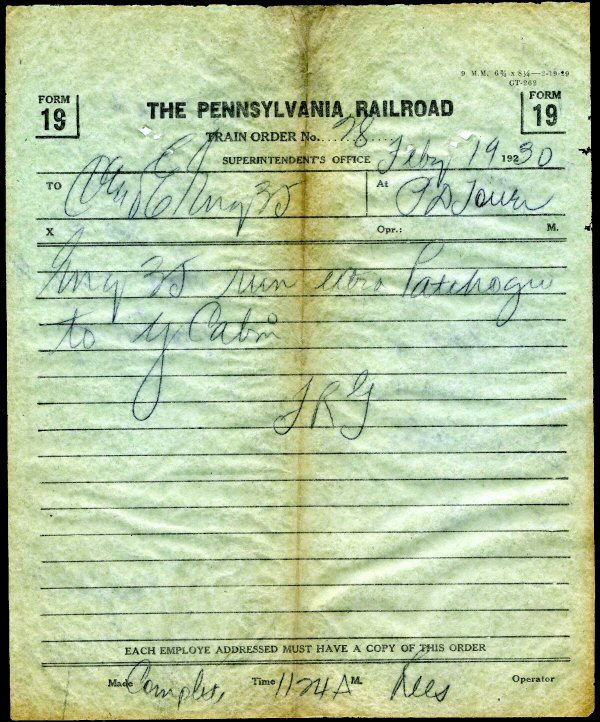 9 M.M. 6¾ x 8¼—2-19-29
CT-262
FORM 19 THE PENNSYLVANIA RAILROAD FORM 19
TRAIN ORDER No. 28
SUPERINTENDENT'S OFFICE Feby 19 1930
TO C&E Eng 35 At PD Tower
X Opr.: M.
Eng 35 run extra Patchogue
to Y Cabin
JRG
EACH EMPLOYE ADDRESSED MUST HAVE A COPY OF THIS ORDER
Made Complete Time 1124 A M. Rees Operator